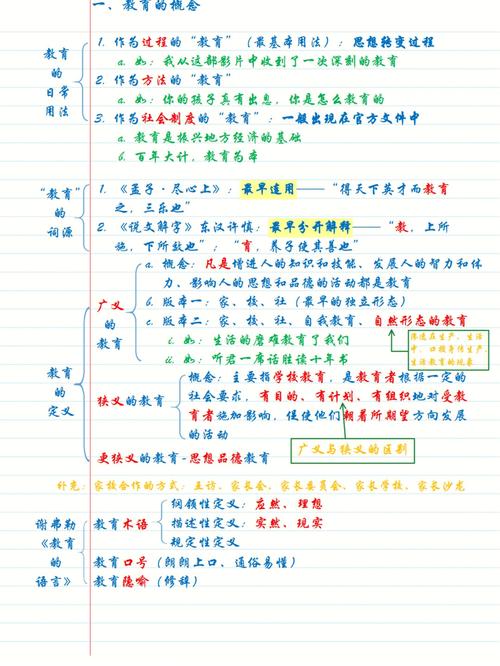 一、教育的概念
教育的日常用法
1. 作为过程的“教育”（最基本用法）：思想转变过程
a. 如：我从这部影片中收到了一次深刻的教育
2. 作为方法的“教育”
a. 如：你的孩子真有出息，你是怎么教育的
3. 作为社会制度的“教育”：一般出现在官方文件中
a. 教育是振兴地方经济的基础
b. 百年大计，教育为本
“教育”的词源
1. 《孟子·尽心上》：最早连用——“得天下英才而教育
之，三乐也”
2. 《说文解字》东汉许慎：最早分开解释——“教，上所
施，下所效也”；“育，养子使其善也”
教育的定义
广义的教育
a. 概念：凡是增进人的知识和技能、发展人的智力和体
力、影响人的思想和品德的活动都是教育
b. 版本一：家、校、社（最早的独立形态）
c. 版本二：家、校、社、自我教育、自然形态的教育
i. 如：生活的磨难教育了我们
ii. 如：听君一席话胜读十年书
渗透在生产、生活
中，口授身传生产、
生活教育的现象
狭义的教育
概念：主要指学校教育，是教育者根据一定的
社会要求，有目的、有计划、有组织地对受教
育者施加影响，促使他们朝着所期望方向发展
的活动
广义与狭义的区别
更狭义的教育-思想品德教育
补充：家校合作的方式：主访、家长会、家长委员会、家长学校、家长沙龙
谢弗勒《教育的语言》
教育术语
纲领性定义：应然、理想
描述性定义：实然、现实
规定性定义
教育口号（朗朗上口、通俗易懂）
教育隐喻（修辞）